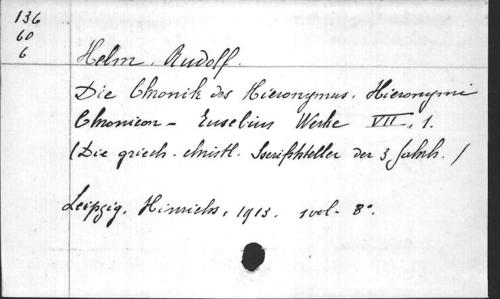 136
60
6
Helm. Rudolf.
Die Chronik des Hieronymus. Hieronymi
Chronicon - Eusebius Werke VII, 1.
(Die griech. christl. Schriftsteller der 3 Jahrh.)
Leipzig. Hinrichs, 1913. 1 vol. 8°.